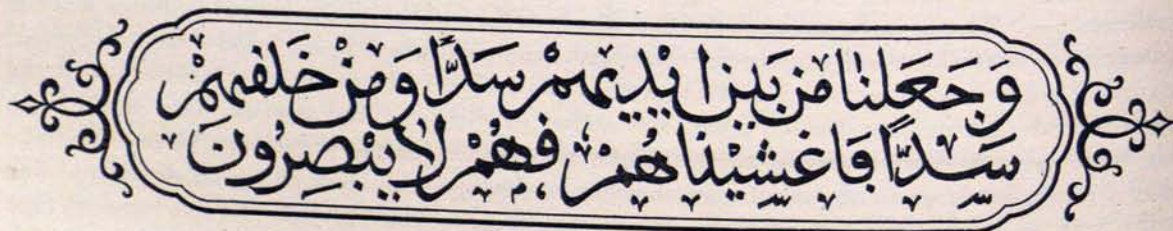 وَجَعَلْنَا مِنْ بَيْنِ اَيْدِيهِمْ سَدًّا وَمِنْ خَلْفِهِمْ
سَدًّا فَاَغْشَيْنَاهُمْ فَهُمْ لَا يُبْصِرُونَ